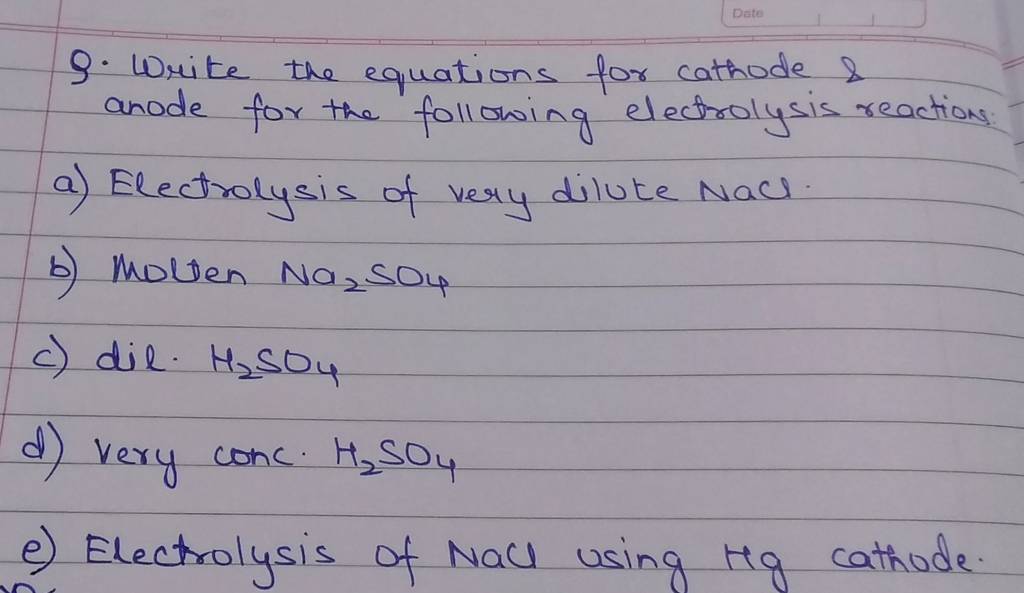 Date
Q. Write the equations for cathode &
anode for the following electrolysis reactions:
a) Electrolysis of very dilute NaCl.
b) Molten Na₂SO₄
c) dil. H₂SO₄
d) very conc. H₂SO₄
e) Electrolysis of NaCl using Hg cathode.